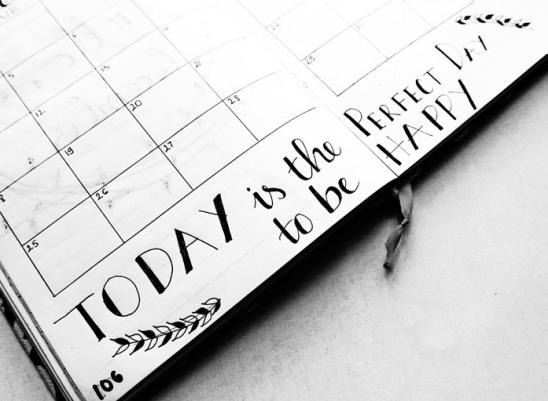 5
12
19 20 21
25 26 27 28
TODAY is the PERFECT DAY
to be HAPPY
106